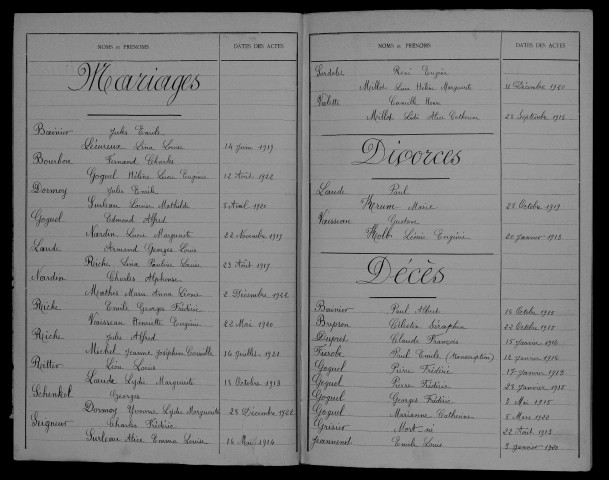 NOMS et PRÉNOMS DATES DES ACTES
Mariages
Bainier Jules Emile
Lécureux Lina Louise 14 Juin 1919
Bourbon Fernand Charles
Goguel Hélène Lucie Eugénie 12 Août 1922
Dormoy Jules Emile
Surleau Louise Mathilde 8 Avril 1920
Goguel Edmond Alfred
Nardin Lucie Marguerite 22 Novembre 1919
Laude Armand Georges Louis
Riche Lina Pauline Laure 23 Août 1919
Nardin Charles Alphonse
Mathis Maria Anna 2 Décembre 1922
Riche Emile Georges Frédéric
Vaisseau Henriette Eugénie 22 Mai 1920
Riche Jules Alfred
Michel Jeanne Joséphine Camille 16 Juillet 1921
Ritter Léon Louis
Laude Lydie Marguerite 18 Octobre 1913
Schenkel Georges
Dormoy Yvonne Lydie Marguerite 28 Décembre 1922
Seigneur Charles Frédéric
Surleau Alice Emma Louise 16 Mai 1914
NOMS et PRÉNOMS DATES DES ACTES
René Eugène
Millot Hélène Marguerite 11 Décembre 1920
Violette Camille Henri
Millot Alice Catherine 28 Septembre 1912
Divorces
Laude Paul
Thrum Marie 28 Octobre 1919
Vaisseau Gustave
Kolb Léonie Eugénie 20 Janvier 1913
Décès
Bainier Paul Albert 16 Octobre 1915
Célestin Séraphin 22 Octobre 1915
Dupret Claude François 15 Janvier 1916
Paul Emile (Transcription) 12 Janvier 1916
Goguel Pierre Frédéric 17 Janvier 1913
Goguel Pierre Frédéric 29 Janvier 1915
Goguel Georges Frédéric 2 Mai 1915
Goguel Marianne Catherine 5 Mars 1920
Grisier Mort-né 22 Août 1913
Jeannenot Emile Louis 3 Janvier 1920